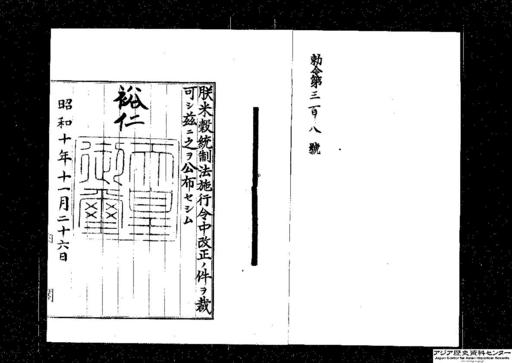 勅令第三百八號
朕米穀統制法施行令中改正ノ件ヲ裁
可シ玆ニ之ヲ公布セシム
裕仁
天皇
御璽
昭和十年十一月二十六日
アジア歴史資料センター
Japan Center for Asian Historical Records